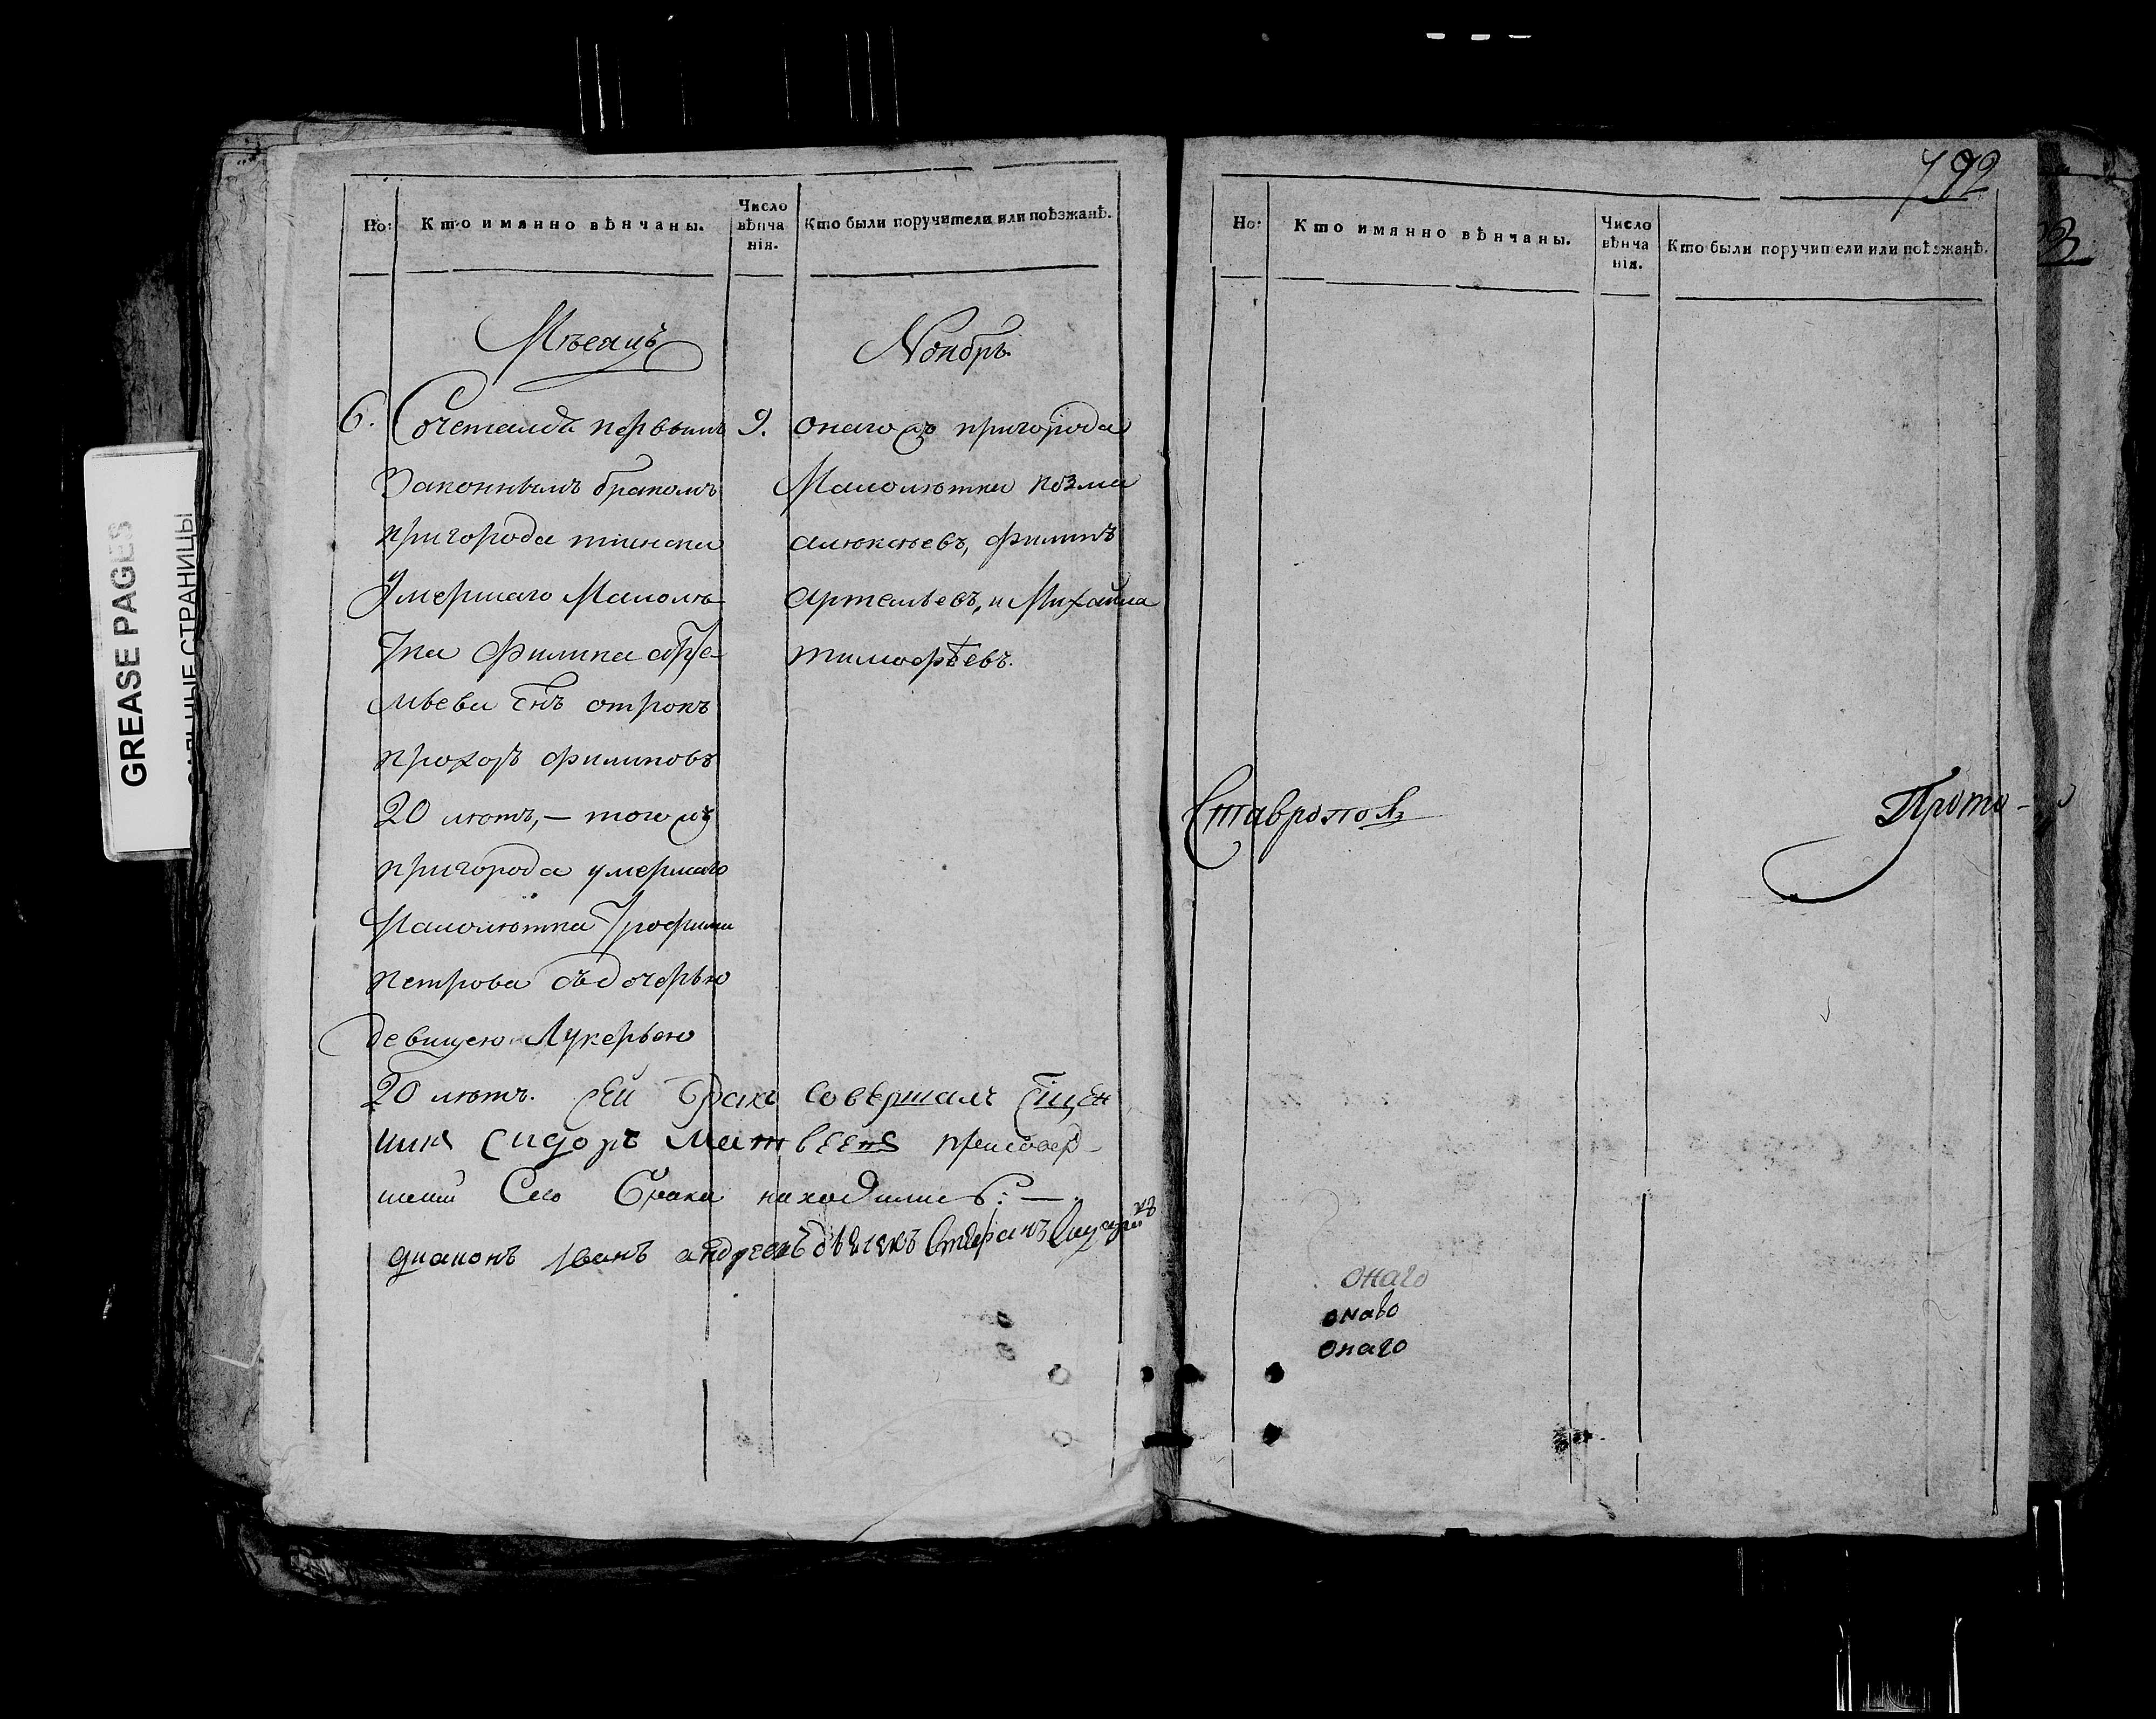 Но:
Кто имянно вѣнчаны.
Число вѣнча нія.
Кто были поручители или поѣзжанѣ.
Мѣсяцъ
Ноябрь.
6. Сочетался первымъ
законнымъ бракомъ
пригорода тіинска
умершаго Малолѣ
тка Филипа
мьева снъ отрокъ
прохоръ филиповъ
20 лѣтъ, — тогожъ
пригорода умершаго
Малолѣтка Трофима
петрова съ дочерью
девицею Лукерьею
20 лѣтъ.
9.
онагожъ пригорода
Малолѣтки козма
алѣксѣевъ, филипъ
артемьевъ, и Михайла
тимофѣевъ.
сей бракъ совершалъ сщен
никъ сидоръ матвеевъ присовер
шении сего брака находились: —
диаконъ Iванъ андреевъ дьячекъ Стефанъ
GREASE PAGES
САЛЬНЫЕ СТРАНИЦЫ
192
Но:
Кто имянно вѣнчаны.
Число вѣнча нія.
Кто были поручители или поѣзжанѣ.
Ставропол
Прото-
онаго
онаво
онаго